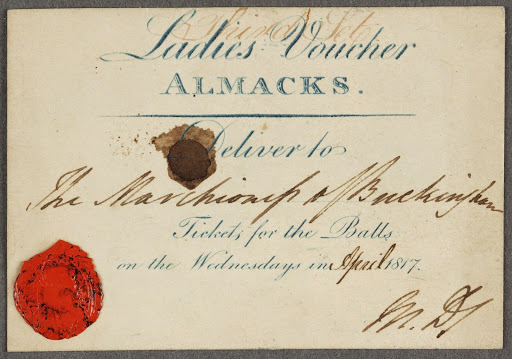 Third Set
Ladies Voucher
ALMACKS.
Deliver to
The Marchioneſs of Buckingham
Tickets for the Balls
on the Wednesdays in April 1817.